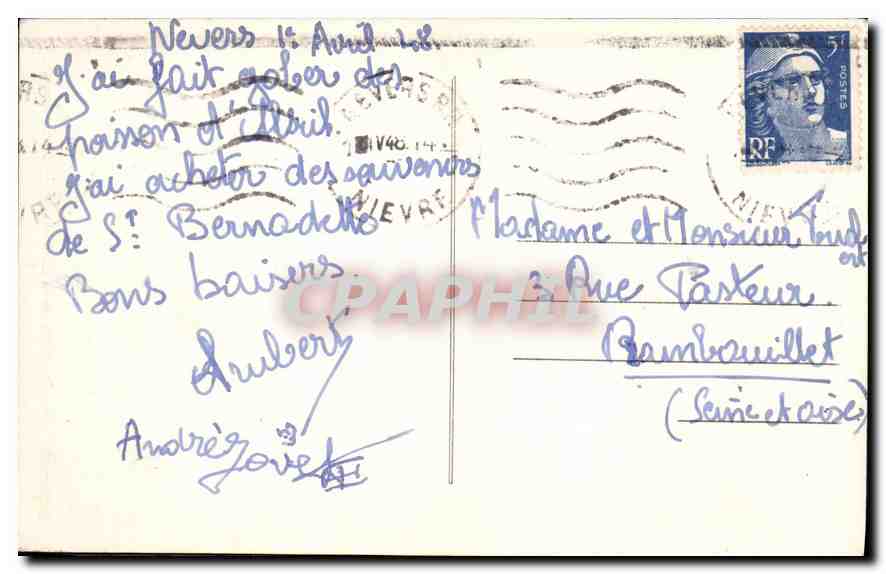 Nevers 1er Avril 48
J'ai fait gober des
poisson d'Avril
J'ai acheter des souvenirs
de St Bernadette
Bons baisers.
Aubert
Andrée
Madame et Monsieur
3 Rue Pasteur.
Rambouillet
(Seine et oise)
5f
POSTES
RF
NEVERS
IV48
NIEVRE
NIEVRE
CPAPHIL